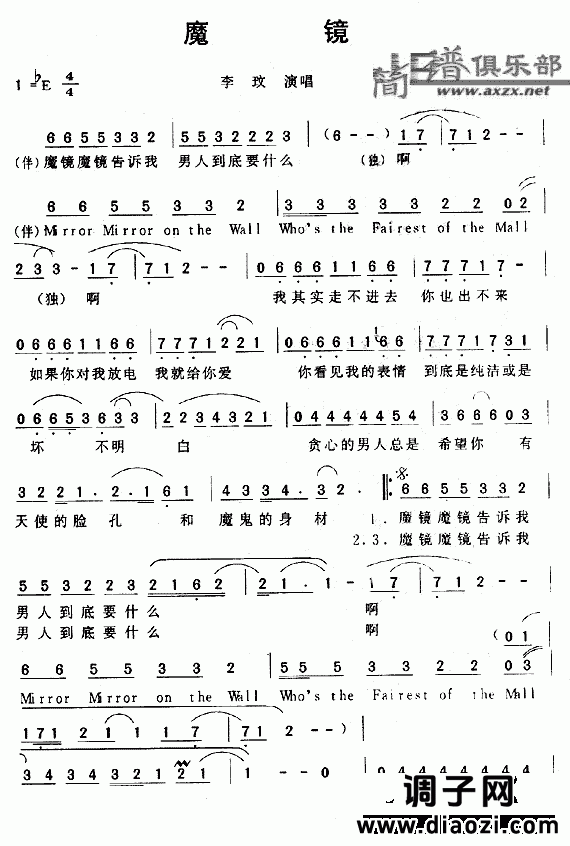 魔 镜
1=♭E 4/4 李 玟 演唱
简谱俱乐部
www.axzx.net
6 6 5 5 3 3 2 | 5 5 3 2 2 2 3 | (6 - -) 1 7 | 7 1 2 - - |
(伴)魔镜魔镜告诉我 男人到底要什么 (独) 啊
6 6 5 5 3 3 2 | 3 3 3 3 2 2 0 2 |
(伴)Mirror Mirror on the Wall Who's the Fairest of the Mall
2 3 3 - 1 7 | 7 1 2 - - | 0 6 6 6 1 1 6 6 | 7 7 7 1 7 - |
(独) 啊 我其实走不进去 你也出不来
0 6 6 6 1 1 6 6 | 7 7 7 1 2 2 1 | 0 6 6 6 1 1 6 6 | 7 7 7 1 7 3 1 |
如果你对我放电 我就给你爱 你看见我的表情 到底是纯洁或是
0 6 6 5 3 6 3 3 | 2 2 3 4 3 2 1 | 0 4 4 4 4 4 5 4 | 3 6 6 6 0 3 |
坏 不明 白 贪心的男人总是 希望你 有
3 2 2 1 . 2 . 1 6 1 | 4 3 3 4 . 3 2 | 6 6 5 5 3 3 2 |
天使的脸 孔 和 魔鬼的身 材 1. 魔镜魔镜告诉我
2.3. 魔镜魔镜告诉我
5 5 3 2 2 3 2 1 6 2 | 2 1 . 1 - | 1 7 | 7 1 2 - - |
男人到底要什么 啊
男人到底要什么 啊 (0 1
6 6 5 5 3 3 2 | 5 5 5 3 3 2 2 0 3 |
Mirror Mirror on the Wall Who's the Fairest of the Mall
1 7 1 2 1 1 1 7 | 7 1 2 - - ) |
3 4 3 4 3 2 1 2 1 | 1 - - 0 | 0 4 4 4 4 4 4 4
调子网
www.diaozi.com